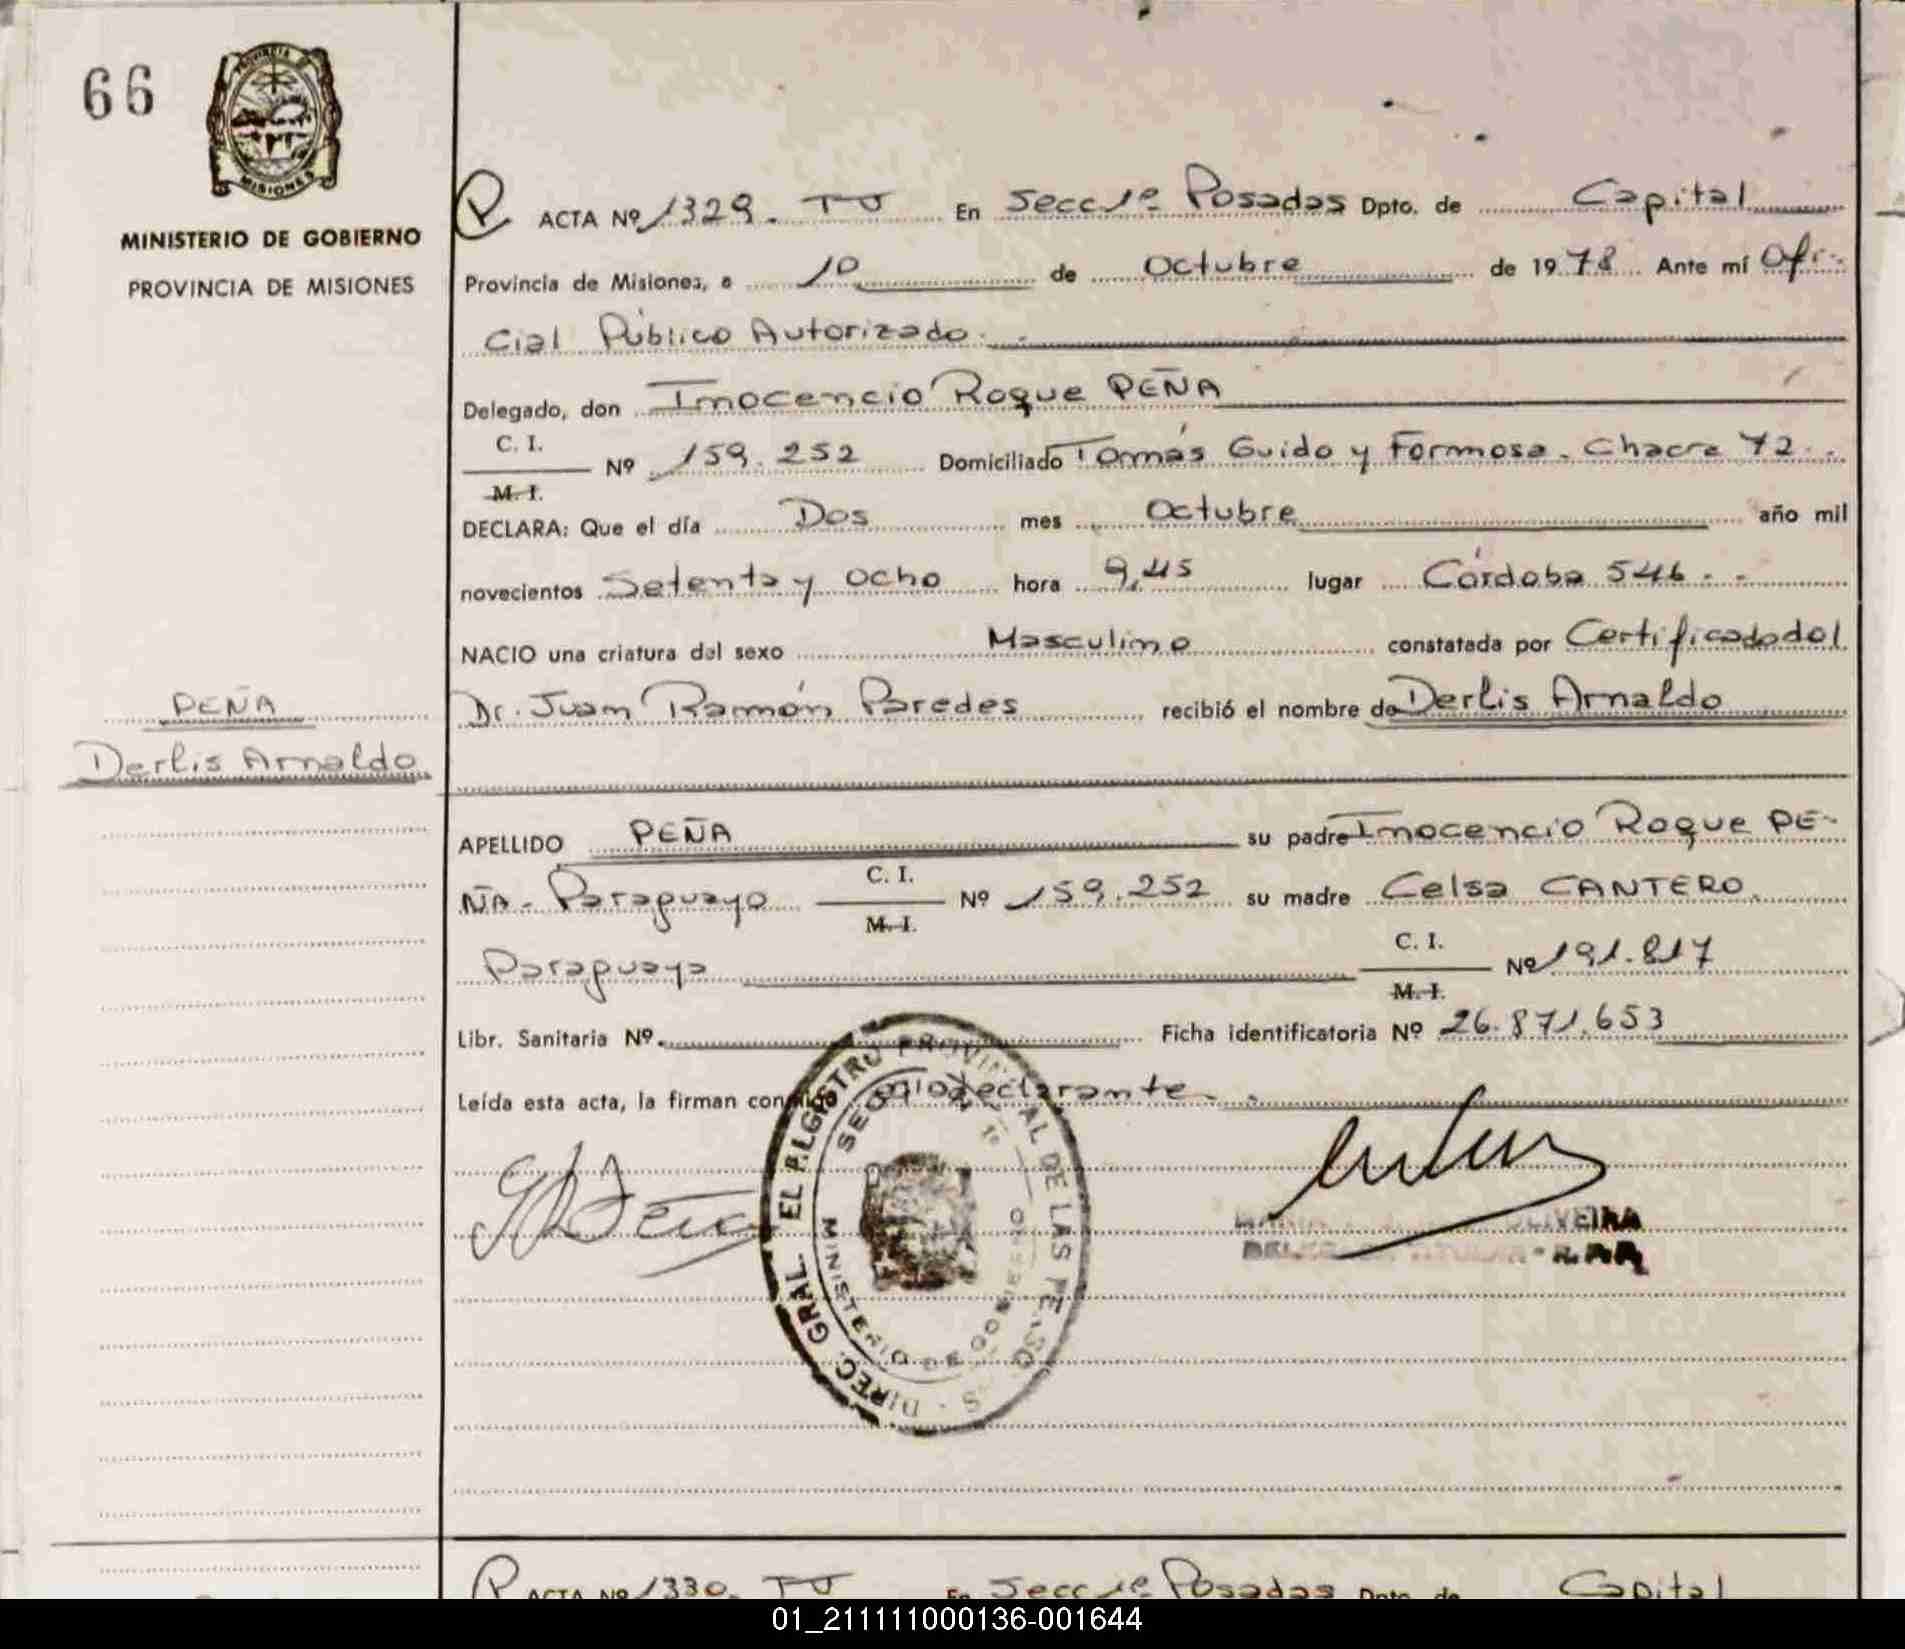 66
PROVINCIA DE
MISIONES
MINISTERIO DE GOBIERNO
PROVINCIA DE MISIONES
PEÑA
Derlis Arnaldo
ACTA Nº 1329. TO En Secc 1ª Posadas Dpto. de Capital
Provincia de Misiones, a 10 de Octubre de 1978 Ante mí Ofi-
cial Público Autorizado.
Delegado, don Inocencio Roque PEÑA
C. I.
Nº 159.252 Domiciliado Tomás Guido y Formosa. Chacra 72.
M. I.
DECLARA: Que el día Dos mes Octubre año mil
novecientos Setenta y Ocho hora 9,45 lugar Córdoba 546.
NACIO una criatura del sexo Masculino constatada por Certificado del
Dr. Juan Ramón Paredes recibió el nombre de Derlis Arnaldo
APELLIDO PEÑA su padre Inocencio Roque PE-
ÑA - Paraguayo C. I. Nº 159.252 su madre Celsa CANTERO.
M. I.
Paraguaya C. I. Nº 191.817
M. I.
Libr. Sanitaria Nº Ficha identificatoria Nº 26.871.653
Leída esta acta, la firman conmigo declarante.
DIREC. GRAL. REGISTRO PROVINCIAL DE LAS PERSONAS
MINISTERIO DE GOBIERNO
OLIVEIRA
ACTA Nº 1330. TO En Secc 1ª Posadas Dpto. de Capital
01_211111000136-001644